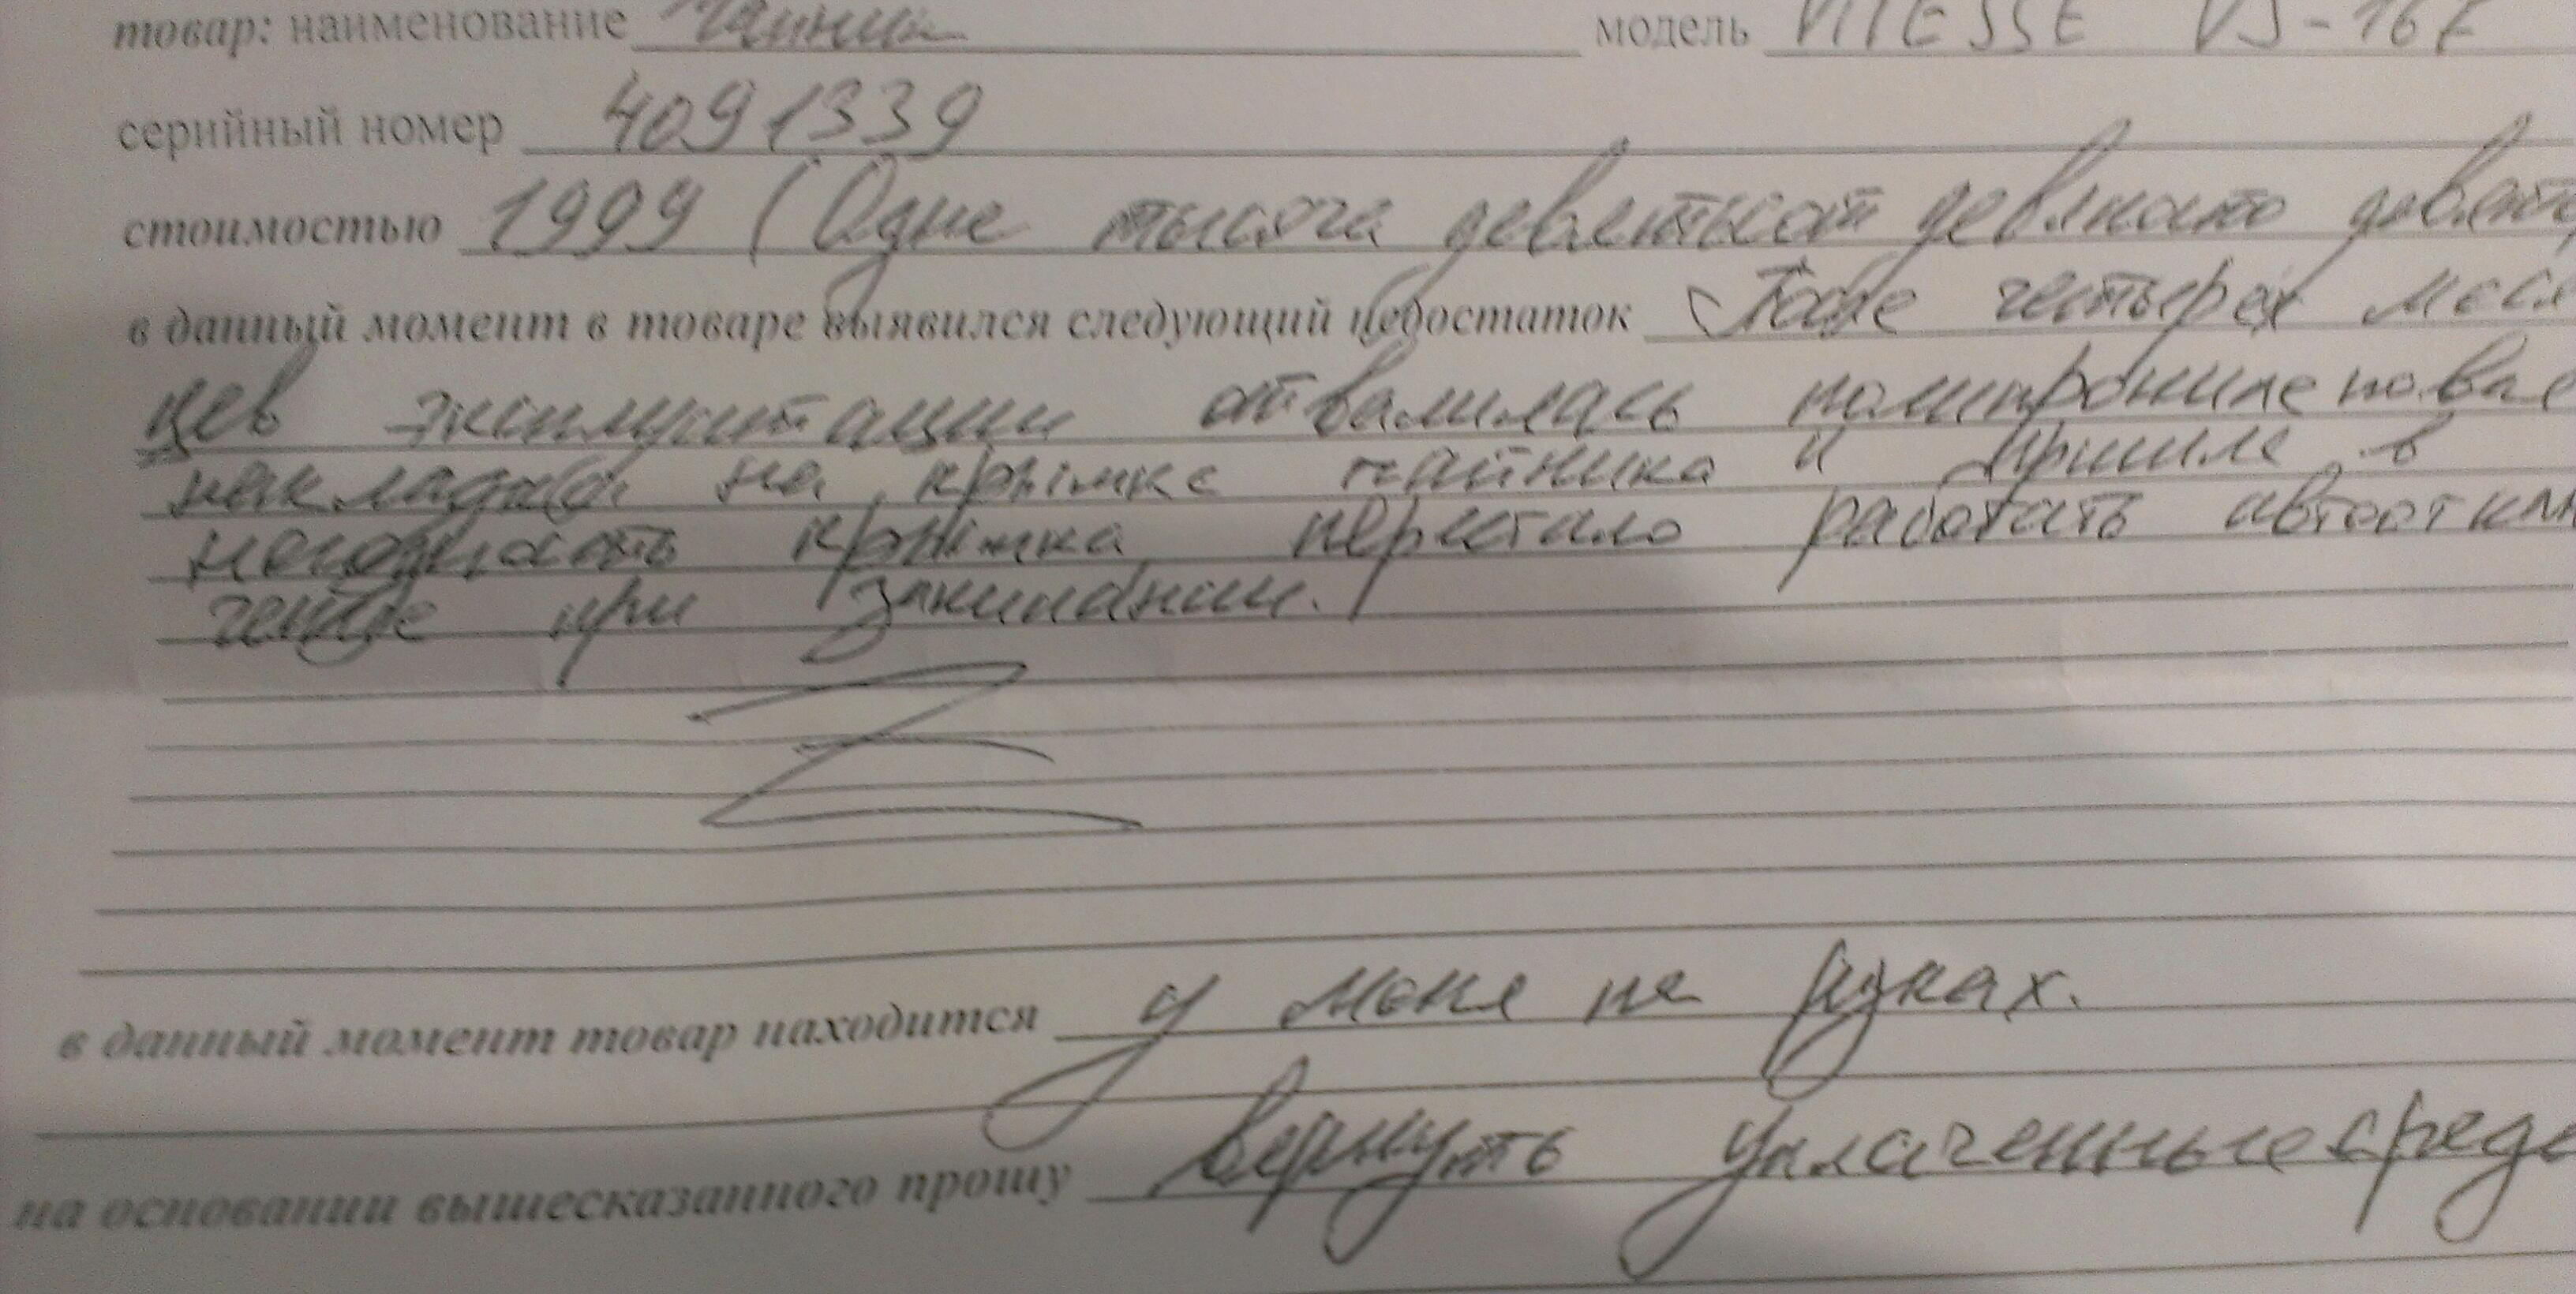 товар: наименование Чайник модель VITESSE VS-16
серийный номер 4091339
стоимостью 1999 (Одна тысяча девятьсот девяносто девять
в данный момент в товаре выявился следующий недостаток После четырех меся
цев эксплуатации отвалилась
накладка на крышке чайника и пришла в
негодность крышка, перестало работать автоотклю
чение при закипании.
в данный момент товар находится у меня на руках.
на основании вышесказанного прошу вернуть уплаченные средс